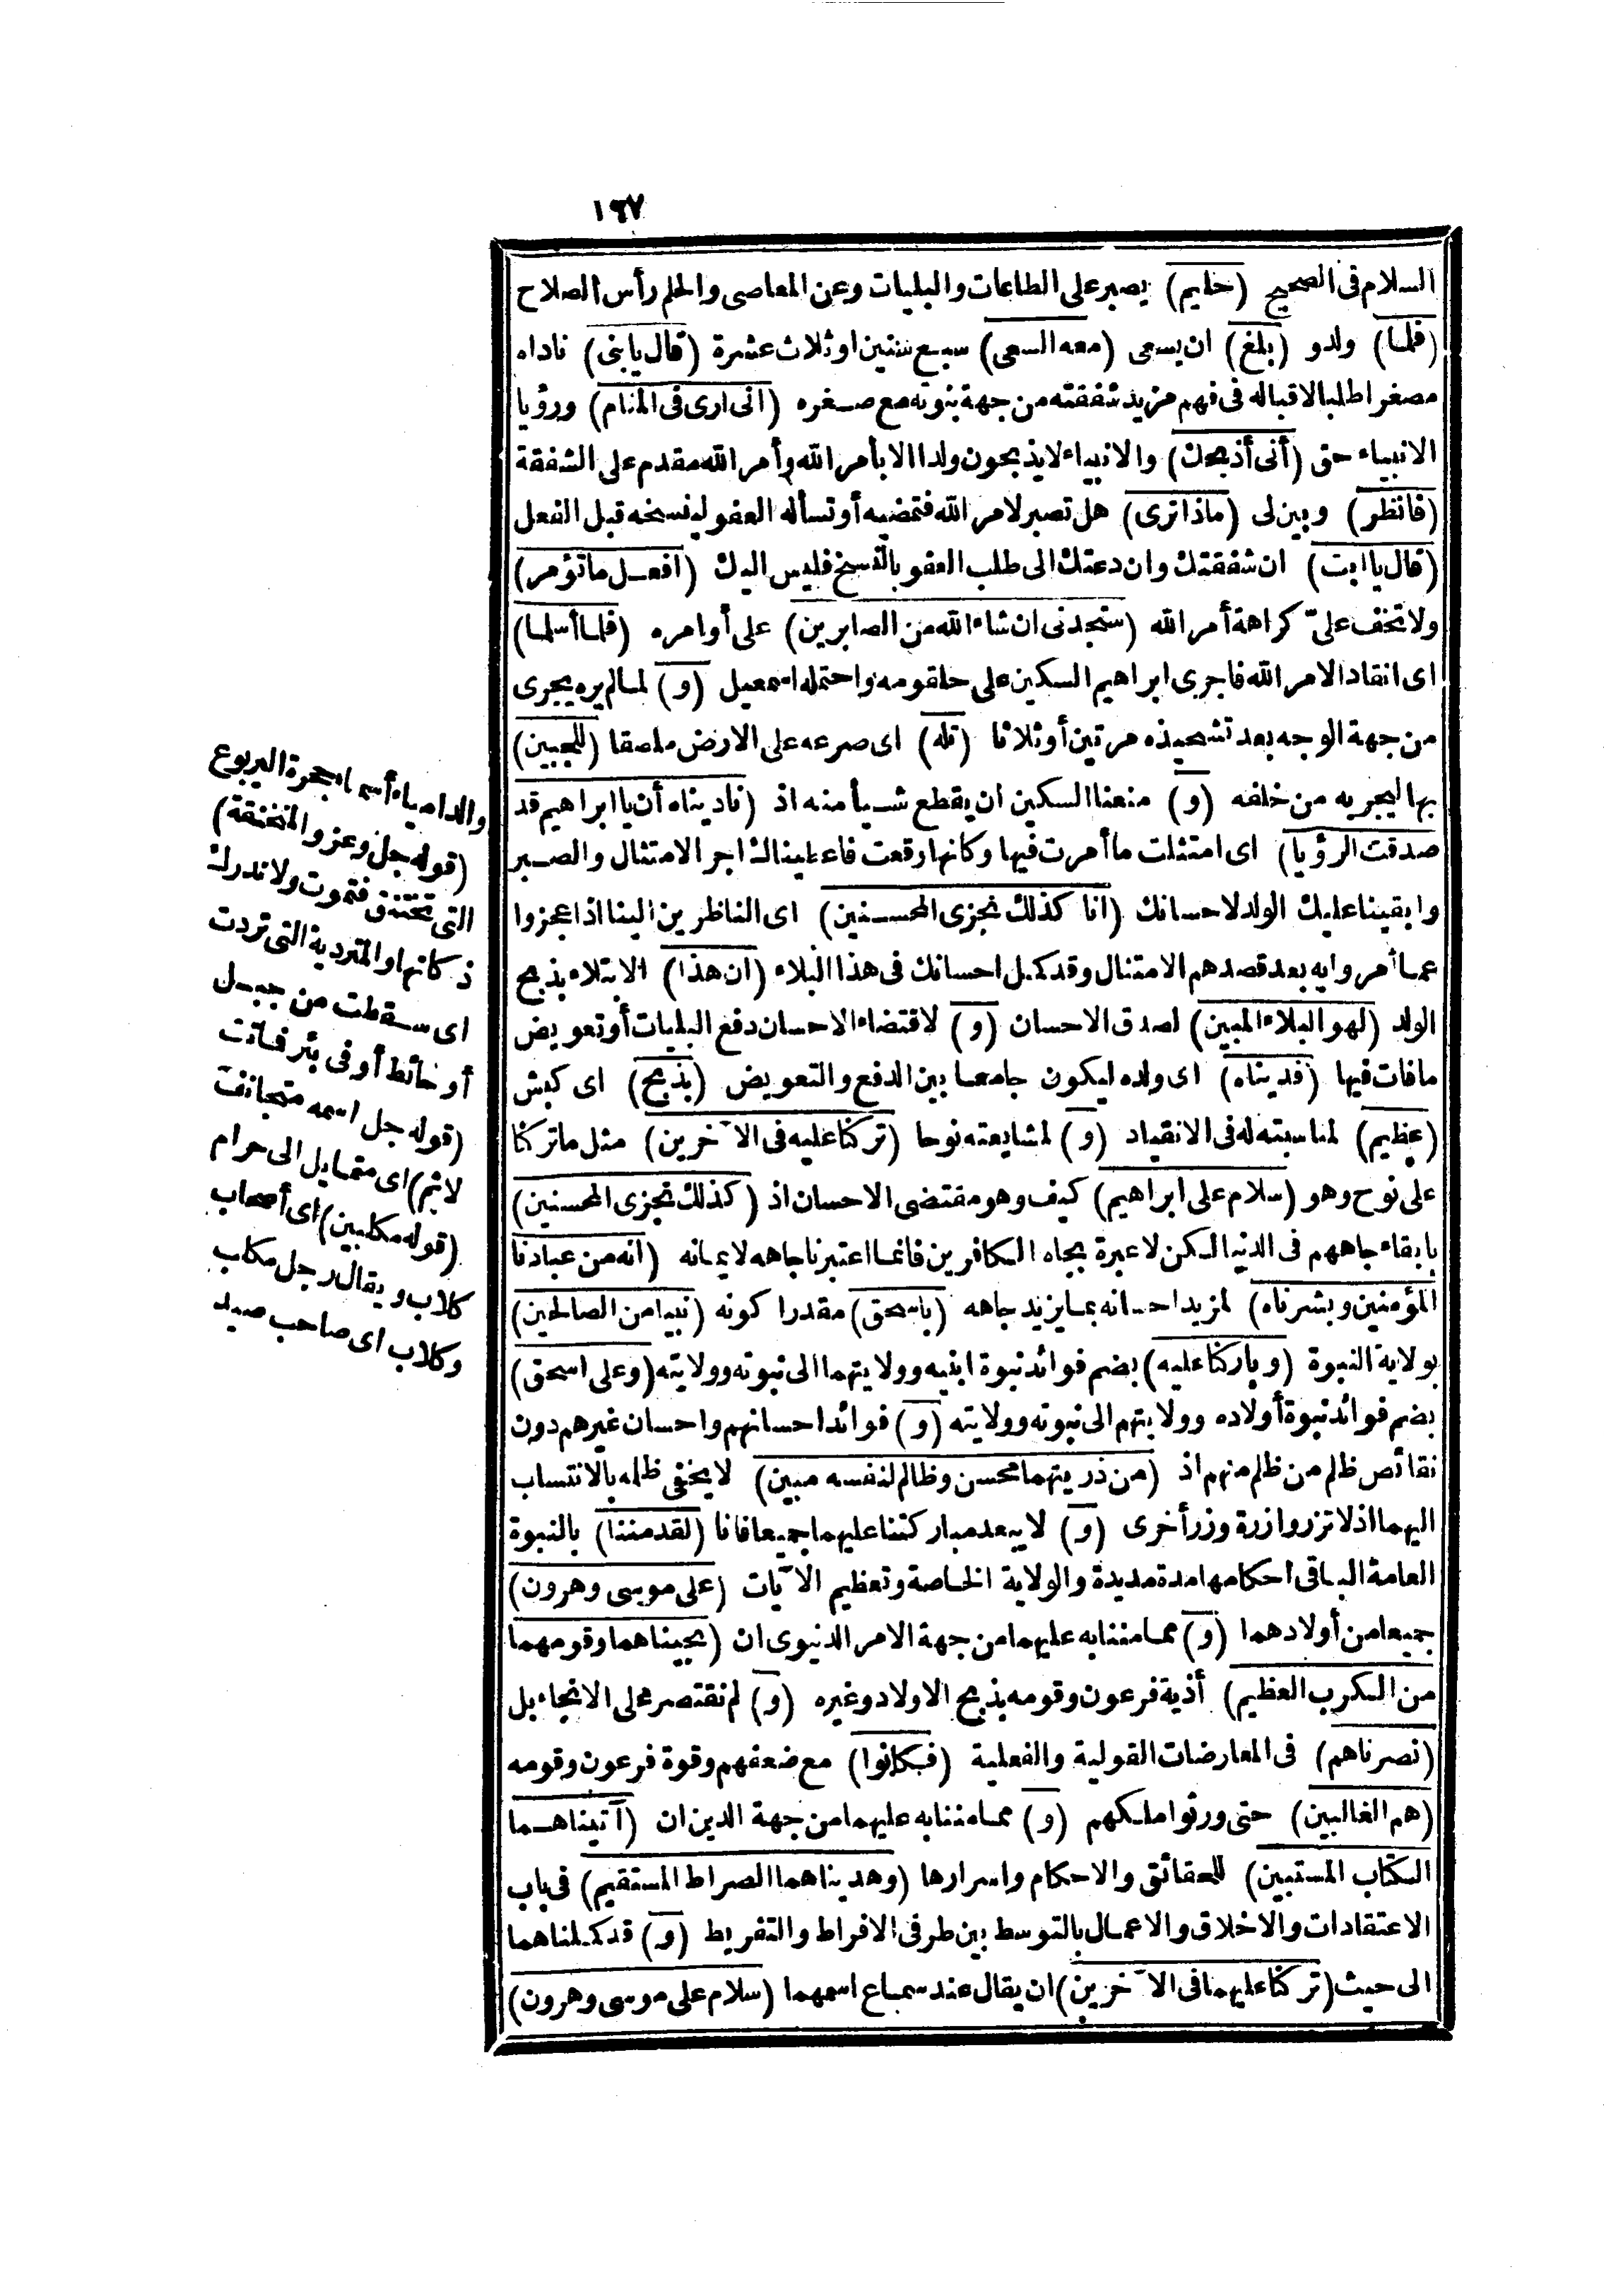 ١٦٧
السلام فى الصحيح (حليم) يصبر على الطاعات والبليات وعن المعاصى والحلم رأس الصلاح
(فلما) ولد و (بلغ) ان يسعى (معه السعى) سبع سنين او ثلاث عشرة (قال يابنى) ناداه
مصغرا طلبا لاقباله فى فهم مزيد شفقته من جهة بنوته مع صغره (انى ارى فى المنام) ورؤيا
الانبياء حق (أنى أذبحك) والانبياء لا يذبحون ولدا الا بأمر الله وأمر الله مقدم على الشفقة
(فانظر) وبين لى (ماذا ترى) هل تصبر لامر الله فتمضيه أو تسأله العفو لينسخه قبل الفعل
(قال يا ابت) ان شفقتك وان دعتك الى طلب العفو بالنسخ فليس اليك (افعل ما تؤمر)
ولا تخف علىّ كراهة أمر الله (ستجدنى ان شاء الله من الصابرين) على أوامره (فلما أسلما)
اى انقاد الامر الله فاجرى ابراهيم السكين على حلقومه واحتمله اسمعيل (و) لما لم يره يجرى
من جهة الوجه بعد تشحيذه مرتين أو ثلاثا (تله) اى صرعه على الارض ملصقا (للجبين)
بها ليجريه من خلفه (و) منعنا السكين ان يقطع شيأ منه اذ (ناديناه أن يا ابراهيم قد
صدقت الرؤيا) اى امتثلت ما أمرت فيها وكانها وقعت فاعطيناك اجر الامتثال والصبر
وابقينا عليك الولد لاحسانك (انا كذلك نجزى المحسنين) اى الناظرين الينا اذا عجزوا
عما أمروا به بعد قصدهم الامتثال وقد كمل احسانك فى هذا البلاء (ان هذا) الابتلاء بذبح
الولد (لهو البلاء المبين) لصدق الاحسان (و) لاقتضاء الاحسان دفع البليات أو تعويض
ما فات فيها (فديناه) اى ولده ليكون جامعا بين الدفع والتعويض (بذبح) اى كبش
(عظيم) لمناسبته له فى الانقياد (و) لمشايعته نوحا (تركنا عليه فى الآخرين) مثل ما تركنا
على نوح وهو (سلام على ابراهيم) كيف وهو مقتضى الاحسان اذ (كذلك نجزى المحسنين)
بابقاء جاههم فى الدنيا لكن لا عبرة بجاه الكافرين فانما اعتبرنا جاهه لايمانه (انه من عبادنا
المؤمنين وبشرناه) لمزيد احسانه بما يزيد جاهه (باسحق) مقدرا كونه (نبيا من الصالحين)
بولاية النبوة (وباركنا عليه) بضم فوائد نبوة ابنيه وولايتهما الى نبوته وولايته (وعلى اسحق)
بضم فوائد نبوة أولاده وولايتهم الى نبوته وولايته (و) فوائد احسانهم واحسان غيرهم دون
نقائص ظلم من ظلم منهم اذ (من ذريتهما محسن وظالم لنفسه مبين) لا يخفى ظلمه بالانتساب
اليهما اذ لا تزر وازرة وزر أخرى (و) لا يبعد مباركتنا عليهما جميعا فانا (لقد مننا) بالنبوة
العامة الباقى احكامها مدة مديدة والولاية الخاصة وتعظيم الآيات (على موسى وهرون)
جميعا من أولادهما (و) مما مننا به عليهما من جهة الامر الدنيوى ان (نجيناهما وقومهما
من الكرب العظيم) أذية فرعون وقومه بذبح الاولاد وغيره (و) لم نقتصر على الانجاء بل
(نصرناهم) فى المعارضات القولية والفعلية (فكانوا) مع ضعفهم وقوة فرعون وقومه
(هم الغالبين) حتى ورثوا ملكهم (و) مما مننا به عليهما من جهة الدين ان (آتيناهما
الكتاب المستبين) للحقائق والاحكام واسرارها (وهديناهما الصراط المستقيم) فى باب
الاعتقادات والاخلاق والاعمال بالتوسط بين طرفى الافراط والتفريط (و) قد كملناهما
الى حيث (تركنا عليهما فى الآخرين) ان يقال عند سماع اسمهما (سلام على موسى وهرون)
والدامياء أسماء جحرة اليربوع
(قوله جل وعز والمنخنقة)
التى تختنق فتموت ولا تدرك
ذكاتها والمتردية التى تردت
اى سقطت من جبل
أو حائط أو فى بئر فماتت
(قوله جل اسمه متجانف
لاثم) اى متمايل الى حرام
(قوله مكلبين) اى أصحاب
كلاب ويقال رجل مكلب
وكلاب اى صاحب صيد